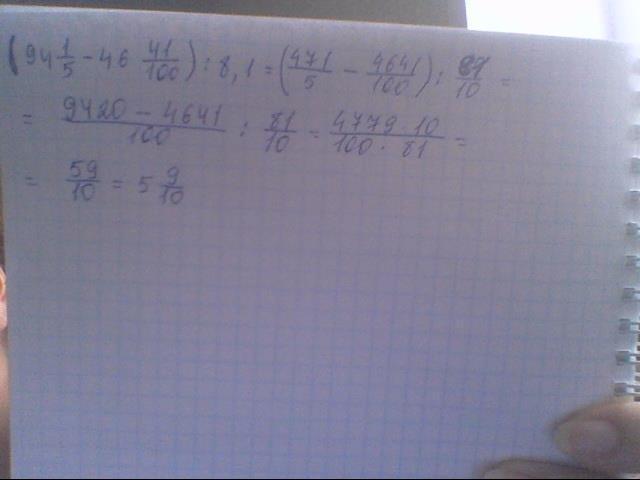 (94 1/5 - 46 41/100) : 8,1 = (471/5 - 4641/100) : 81/10 =
= (9420 - 4641)/100 : 81/10 = (4779 · 10)/(100 · 81) =
= 59/10 = 5 9/10